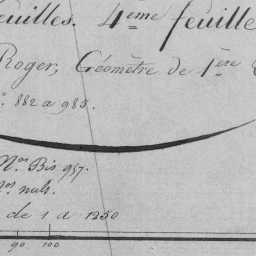 feuilles. 4eme feuille
Roger, Géomètre de 1ère
882 a 985.
Nos Bis 957.
Nos nuls.
de 1 a 1250
90 100